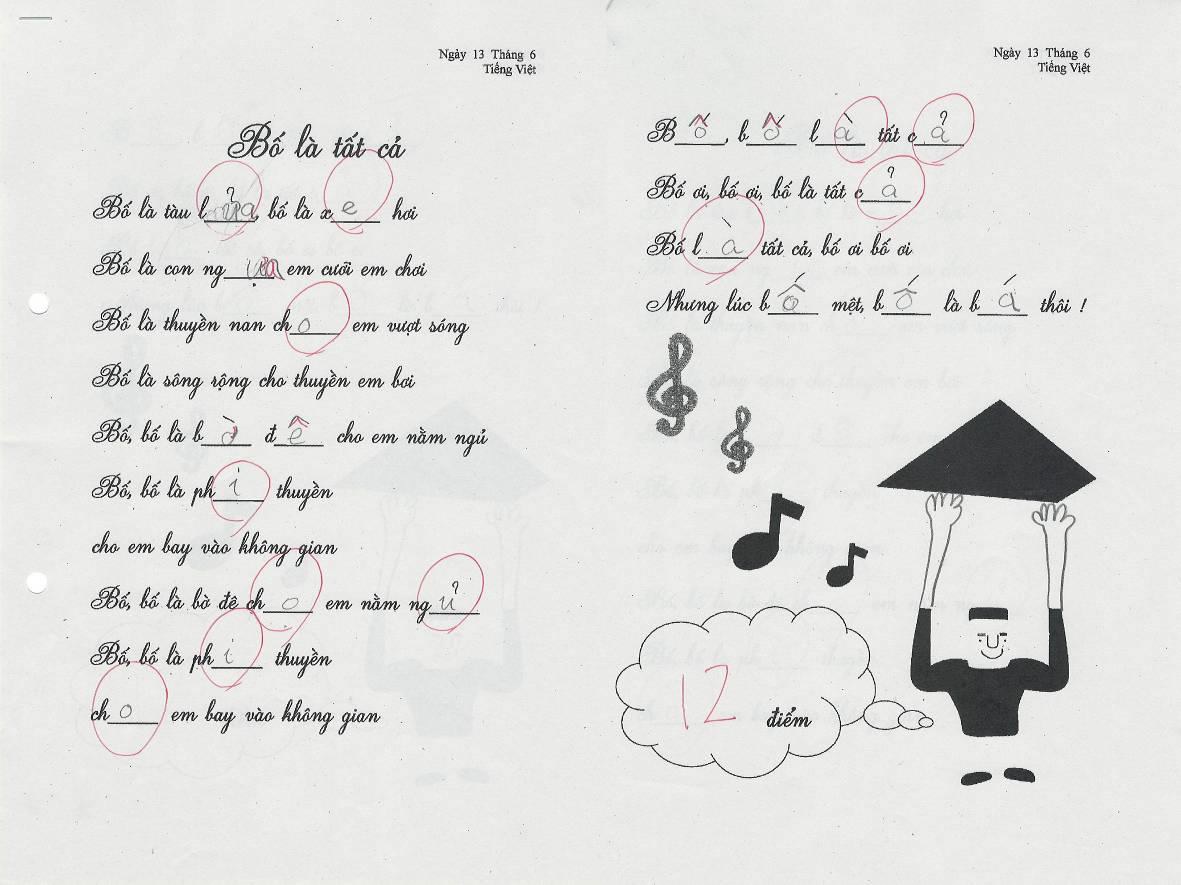 Ngày 13 Tháng 6
Tiếng Việt
Bố là tất cả
Bố là tàu lửa, bố là xe hơi
Bố là con ngựa em cưỡi em chơi
Bố là thuyền nan cho em vượt sóng
Bố là sông rộng cho thuyền em bơi
Bố, bố là bờ đê cho em nằm ngủ
Bố, bố là phi thuyền
cho em bay vào không gian
Bố, bố là bờ đê cho em nằm ngủ
Bố, bố là phi thuyền
cho em bay vào không gian
Ngày 13 Tháng 6
Tiếng Việt
Bố, bố là tất cả
Bố ơi, bố ơi, bố là tất cả
Bố là tất cả, bố ơi bố ơi
Nhưng lúc bố mệt, bố là bá thôi !
12 điểm